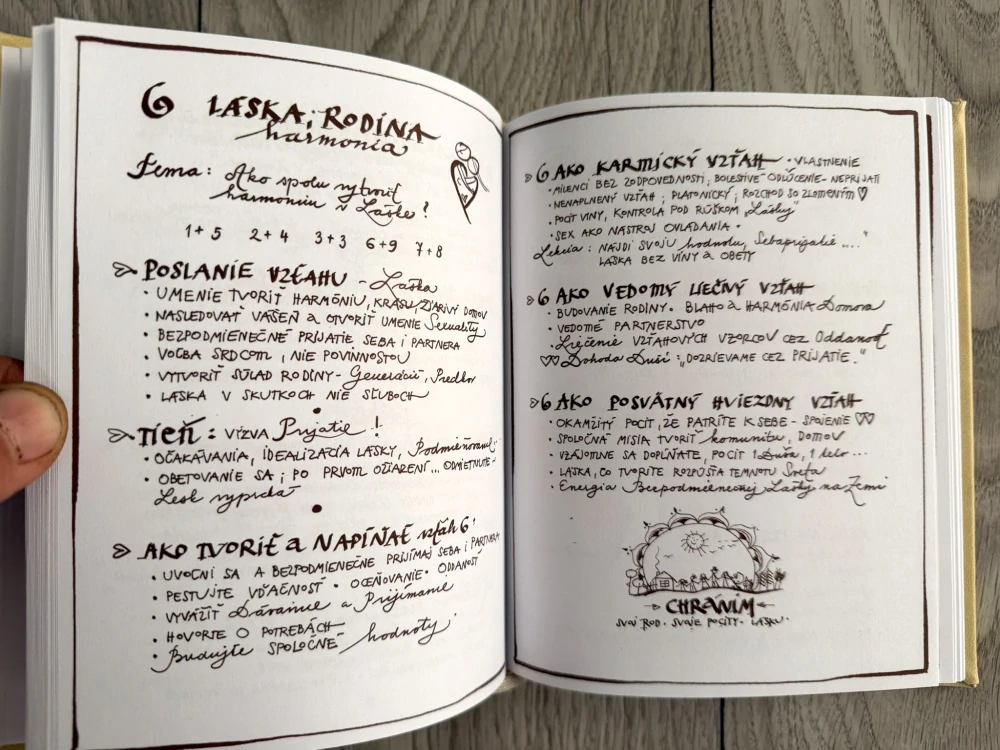 6 LÁSKA, RODINA
harmonia
Téma: Ako spolu vytvoriť
harmóniu v Láske?
1+5 2+4 3+3 6+9 7+8
POSLANIE VZŤAHU - Láska
• UMENIE TVORIŤ HARMÓNIU, KRÁSU, ŽIARIVÝ DOMOV
• NASLEDOVAŤ VÁŠEŇ a OTVORIŤ UMENIE Sexuality
• BEZPODMIENEČNÉ PRIJATIE SEBA i PARTNERA
• VOĽBA SRDCOM, NIE POVINNOSTOU
• VYTVORIŤ SÚLAD RODINY - Generácií, Predkov
• LÁSKA V SKUTKOCH NIE SĽUBOCH
TIEŇ: VÝZVA Prijatie!
• OČAKÁVANIA, IDEALIZÁCIA LÁSKY, Podmieňovanie..
• OBETOVANIE SA; PO PRVOM OŽIARENÍ... ODMIETNUTIE -
Lesk vyprchá
AKO TVORIŤ a NAPĹŇAŤ vzťah 6?
• UVOĽNI SA A BEZPODMIENEČNE PRIJÍMAJ SEBA i PARTNERA
• PESTUJTE VĎAČNOSŤ • OCEŇOVANIE • ODDANOSŤ
• VYVÁŽIŤ Dávanie a Prijímanie
• HOVORTE O POTREBÁCH
• Budujte SPOLOČNÉ hodnoty
6 AKO KARMICKÝ VZŤAH • VLASTNENIE
• MILENCI BEZ ZODPOVEDNOSTI; BOLESTIVÉ ODLÚČENIE - NEPRIJATI
• NENAPLNENÝ VZŤAH; PLATONICKÝ; ROZCHOD SO ZLOMENÝM ♡
• POCIT VINY, KONTROLA POD RÚŠKOM „Lásky"
• SEX AKO NÁSTROJ OVLÁDANIA •
Lekcia: NÁJDI SVOJU hodnotu, Sebaprijatie ...."
LÁSKA BEZ VINY a OBETY
6 AKO VEDOMÝ LIEČIVÝ VZŤAH
• BUDOVANIE RODINY. BLAHO a HARMÓNIA Domova
• VEDOMÉ PARTNERSTVO
• Liečenie VZŤAHOVÝCH VZORCOV CEZ Oddanosť
♡♡ Dohoda Duší: „DOZRIEVAME CEZ PRIJATIE."
6 AKO POSVÄTNÝ HVIEZDNY VZŤAH
• OKAMŽITÝ POCIT, ŽE PATRÍTE K SEBE - SPOJENIE ♡♡
• SPOLOČNÁ MISIA TVORIŤ komunitu, DOMOV
• VZÁJOMNE SA DOPĹŇATE, POCIT 1 Duša, 1 telo ...
• LÁSKA, CO TVORÍTE ROZPÚŠŤA TEMNOTU Sveta
• Energia Bezpodmienečnej Lásky na Zemi
CHRÁNIM
SVOJ ROD. SVOJE POCITY. LÁSKU.